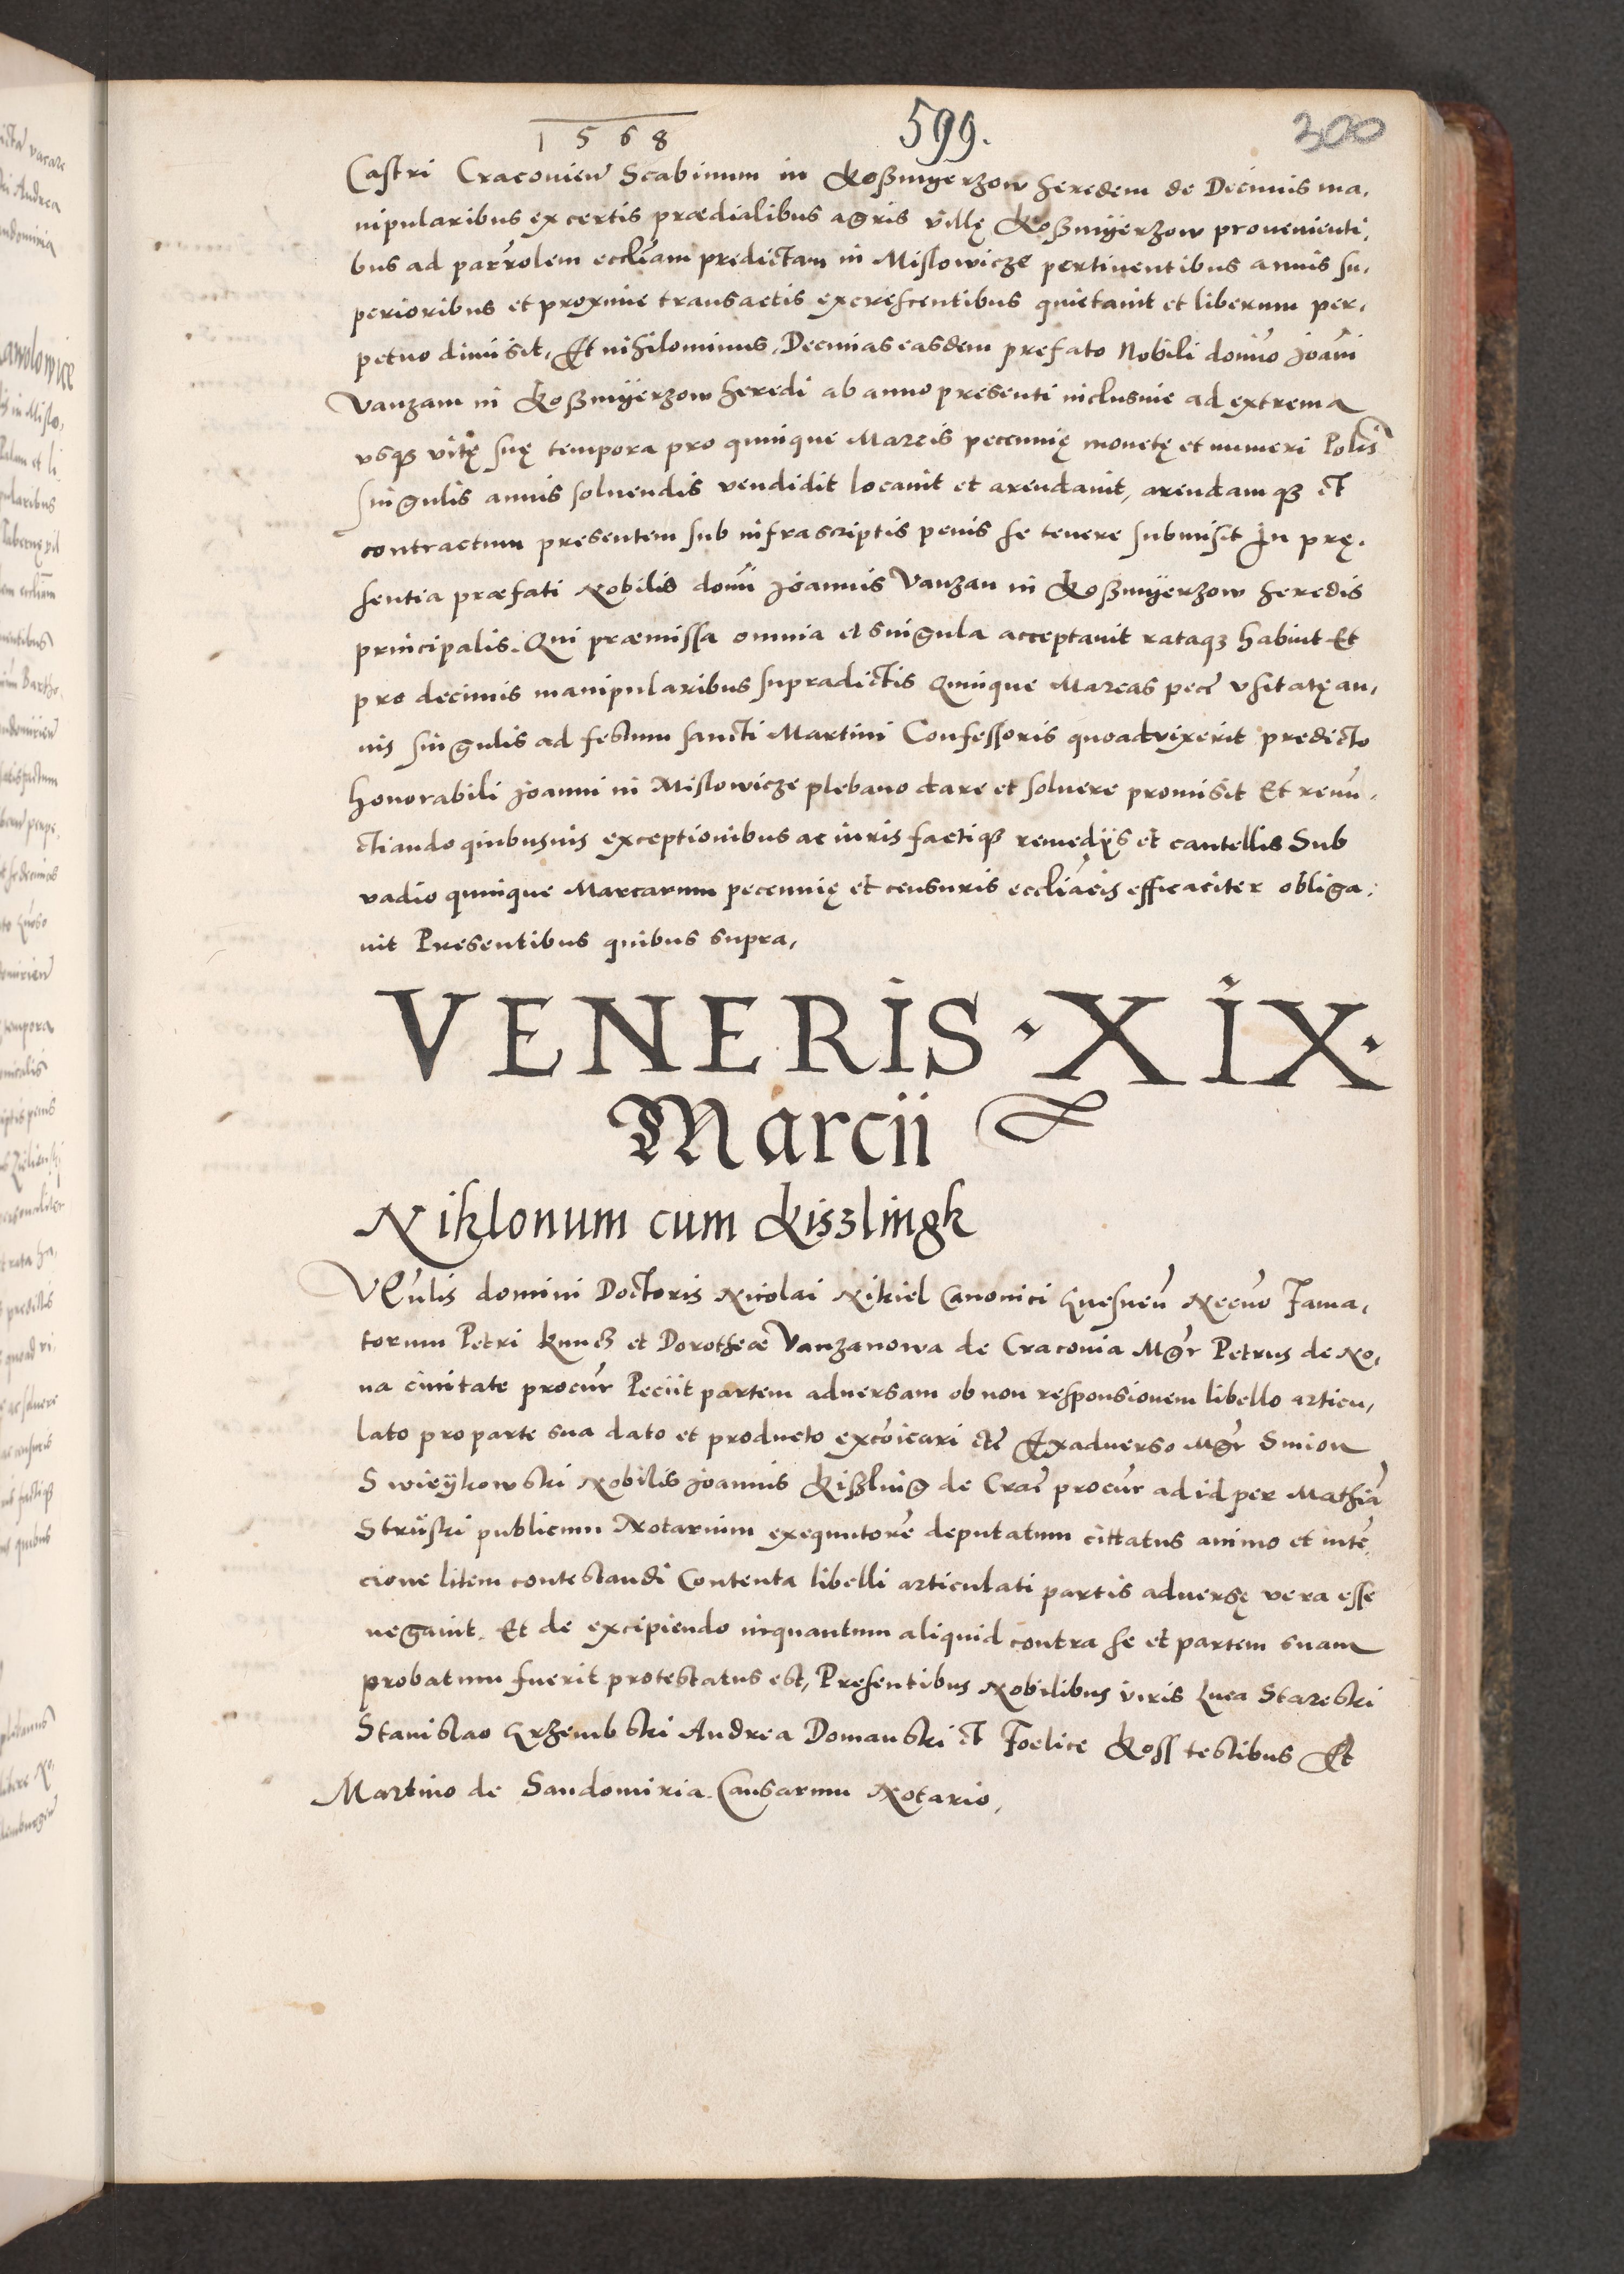 1568
599.
300
Castri Cracovien̄ Scabinum in Koßmyerzow heredem de Decimis ma,
nipularibus ex certis prædialibus agris villę Koßmÿerzow provenienti,
bus ad parrolem eccliam predictam in Mislowicze pertinentibus annis su,
perioribus et proxime transactis excrescentibus quietauit et liberum per,
petuo dimisit, Et nihilominus, Decimas easdem prefato Nobili domīo Joāni
Vanzam in Koßmÿerzow heredi ab anno presenti inclusiue ad extrema
vsq3 vitę suę tempora pro quinque Marcis pecennię monetę et numeri Polis
singulis annis soluendis vendidit locauit et arendauit, arendamq3 et
contractum presentem sub infrascriptis penis se tenere submisit In prę,
sentia præfati Nobilis domī Joannis Vanzan in Koßmÿerzow heredis
principalis. Qui præmissa omnia et singula acceptauit rataq3 habuit Et
pro decimis manipularibus supradictis Quinque Marcas pecc̄ vsitatę an,
nis singulis ad festum sancti Martini Confessoris quoadvixerit predicto
honorabili Joanni in Mislowicze plebano dare et soluere promisit Et renū,
ctiando quibusuis exceptionibus ac iuris factiq3 remedÿs et cautellis Sub
vadio quinque Marcarum pecennię et censuris eccliācis efficaciter obliga,
uit Presentibus quibus supra,
VENERIS · XIX ·
Marcii
Niklonum cum Kiszlingk
Vēn̄lis domini Doctoris Nicolai Nikiel Canonici Gnesnen̄ Necn̄o Fama,
torum Petri Kuncz et Dorotheæ Vanzanowa de Cracovia Mgr̄ Petrus de No,
ua ciuitate procur̄ Peciit partem adversam ob non responsionem libello articu,
lato pro parte sua dato et producto exc̄oicari etc̄ Exaduerso Mgr̄ Simon
Swieÿkowski Nobilis Joannis Kißling de Crac̄ procur̄ ad id per Mathiā
Strüski publicum Notarium exequutorē deputatum cittatus animo et intē,
cione litem contestandi Contenta libelli articulati partis adversę vera esse
negauit. Et de excipiendo inquantum aliquid contra se et partem suam
probatum fuerit protestatus est, Presentibus Nobilibus viris Luca Starcski
Stanislao Grzembski Andrea Domanski et Foelice Koss testibus Et
Martino de Sandomiria Causarum Notario,